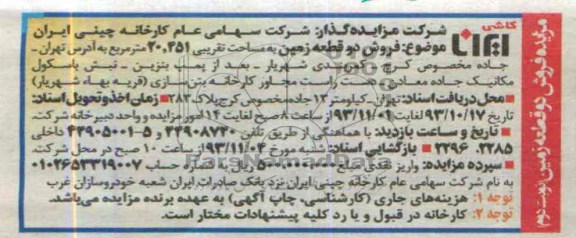 مزایده فروش دو قطعه زمین نوبت دوم
کاشی
ایرانا
شرکت مزایده‌گذار: شرکت سهامی عام کارخانه چینی ایران
موضوع: فروش دو قطعه زمین به مساحت تقریبی ۲۰,۲۵۱ مترمربع به آدرس تهران -
جاده مخصوص کرج - کمربندی شهریار - بعد از پمپ بنزین - نبش باسکول
مکانیک جاده معادن سمت راست مجاور کارخانه بتن‌سازی (قریه بهاء شهریار)
■ محل دریافت اسناد: تهران- کیلومتر ۱۲ جاده مخصوص کرج پلاک ۲۸۳ ■ زمان اخذ و تحویل اسناد:
تاریخ ۹۳/۱۰/۱۷ لغایت ۹۳/۱۱/۰۱ از ساعت ۸ صبح لغایت ۱۴ امور مزایده و واحد دبیرخانه شرکت.
■ تاریخ و ساعت بازدید: با هماهنگی از طریق تلفن ۴۴۹۰۸۷۴۰ و ۵-۴۴۹۰۵۰۰۱ داخلی
۲۲۸۵، ۲۲۹۶ ■ بازگشایی اسناد: شنبه مورخ ۹۳/۱۱/۰۴ از ساعت ۱۰ صبح در محل شرکت.
■ سپرده مزایده: واریز نقدی مبلغ ریال به شماره حساب ۰۱۰۲۶۵۳۳۱۹۰۰۷
به نام شرکت سهامی عام کارخانه چینی ایران نزد بانک صادرات ایران شعبه خودروسازان غرب
توجه ۱: هزینه‌های جاری (کارشناسی، چاپ آگهی) به عهده برنده مزایده می‌باشد.
توجه ۲: کارخانه در قبول و یا رد کلیه پیشنهادات مختار است.
ParsNamadData